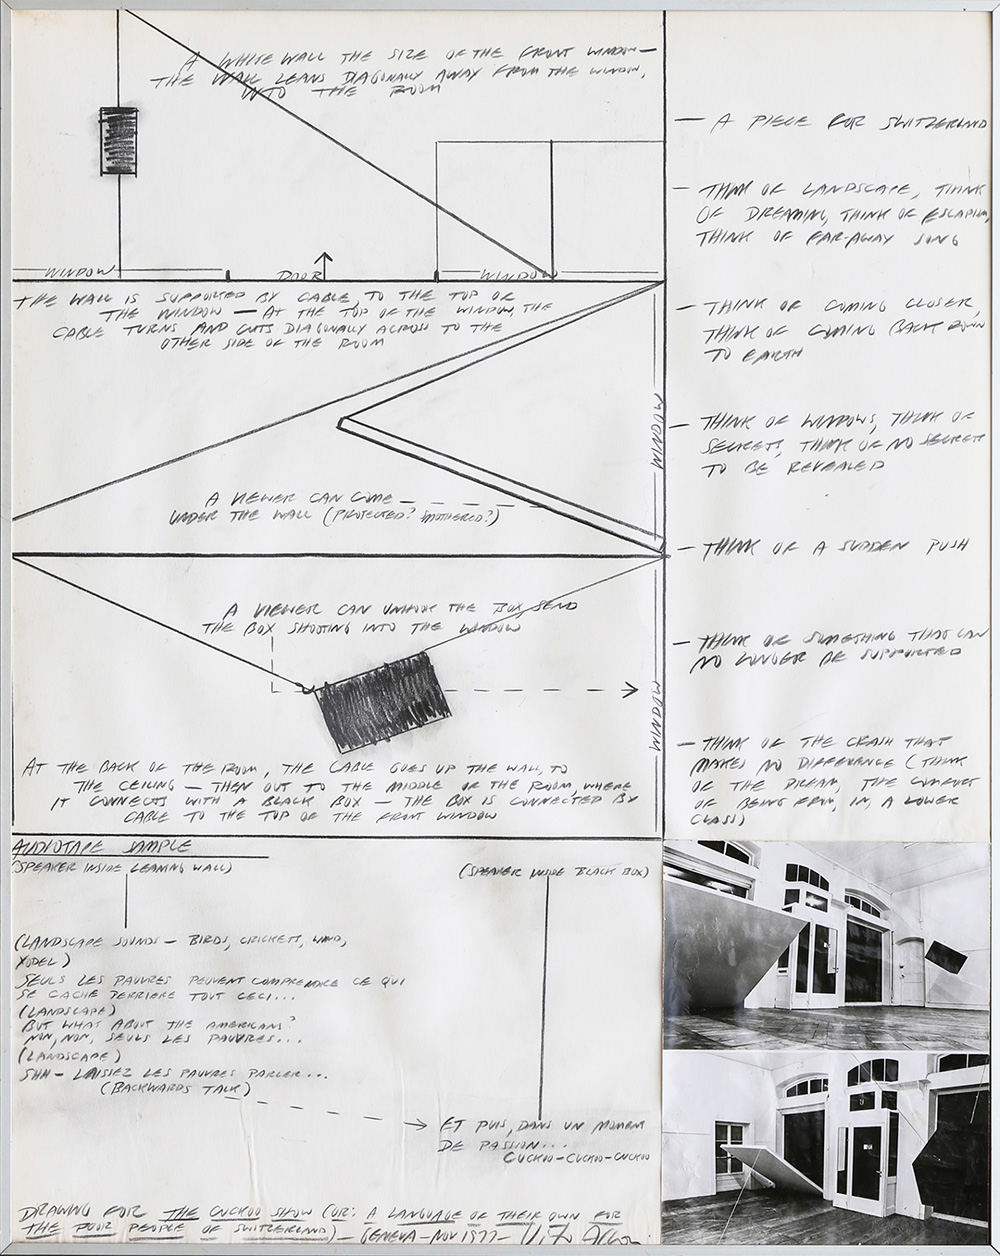 A WHITE WALL THE SIZE OF THE FRONT WINDOW—
THE WALL LEANS DIAGONALLY AWAY FROM THE WINDOW,
INTO THE ROOM
WINDOW
DOOR
WINDOW
THE WALL IS SUPPORTED BY CABLE, TO THE TOP OF
THE WINDOW — AT THE TOP OF THE WINDOW, THE
CABLE TURNS AND CUTS DIAGONALLY ACROSS TO THE
OTHER SIDE OF THE ROOM
WINDOW
A VIEWER CAN COME
UNDER THE WALL (PROTECTED? SMOTHERED?)
A VIEWER CAN UNHOOK THE BOX, SEND
THE BOX SHOOTING INTO THE WINDOW
WINDOW
AT THE BACK OF THE ROOM, THE CABLE GOES UP THE WALL, TO
THE CEILING — THEN OUT TO THE MIDDLE OF THE ROOM, WHERE
IT CONNECTS WITH A BLACK BOX — THE BOX IS CONNECTED BY
CABLE TO THE TOP OF THE FRONT WINDOW
— A PIECE FOR SWITZERLAND
— THINK OF LANDSCAPE, THINK
OF DREAMING, THINK OF ESCAPING,
THINK OF FAR-AWAY SONG
— THINK OF COMING CLOSER,
THINK OF COMING BACK DOWN
TO EARTH
— THINK OF WINDOWS, THINK OF
SECRETS, THINK OF NO SECRET
TO BE REVEALED
— THINK OF A SUDDEN PUSH
— THINK OF SOMETHING THAT CAN
NO LONGER BE SUPPORTED
— THINK OF THE CRASH THAT
MAKES NO DIFFERENCE (THINK
OF THE DREAM, THE COMFORT
OF BEING FROM, IN, A LOWER
CLASS)
AUDIOTAPE SAMPLE
(SPEAKER INSIDE LEANING WALL)
(SPEAKER INSIDE BLACK BOX)
(LANDSCAPE SOUNDS — BIRDS, CRICKETS, WIND,
YODEL)
SEULS LES PAUVRES PEUVENT COMPRENDRE CE QUI
SE CACHE DERRIERE TOUT CECI...
(LANDSCAPE)
BUT WHAT ABOUT THE AMERICANS?
NON, NON, SEULS LES PAUVRES...
(LANDSCAPE)
SHH — LAISSEZ LES PAUVRES PARLER...
(BACKWARDS TALK)
ET PUIS, DANS UN MOMENT
DE PASSION...
CUCKOO-CUCKOO-CUCKOO
DRAWING FOR THE CUCKOO SHOW (OR: A LANGUAGE OF THEIR OWN FOR
THE POOR PEOPLE OF SWITZERLAND) — GENEVA — NOV 1977 —